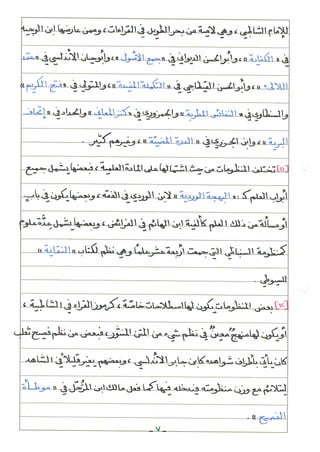 للإمام الشاطبي، وهي لامية من بحر الطويل في القراءات، وممن عارضها ابن الوجيه
في «الكفاية»، وأبو الحسن الديواني في «جمع الأصول»، وأبو حيان الأندلسي في «عقد
اللآلي»، وأبو الحسن القيجاطي في «التكملة المفيدة»، والمتولي في «فتح الكريم»
والسنطاوي في «النفائس المطربة» والجمزوري في «كنز المعاني» والحداد في «إتحاف
البرية»، وابن الجزري في «الدرة المضيئة»، وغيرهم كثير.
[١١] تختلف المنظومات من حيث اشتمالها على المادة العلمية، فبعضها يشمل جميع
أبواب العلم كـ: «البهجة الوردية» لابن الوردي في الفقه، وبعضها يكون في باب
أو مسألة من ذلك العلم كألفية ابن الهائم في الفرائض، وبعضها يشمل عدة علوم
كمنظومة السنباطي التي جمعت أربعة عشر علما وهي نظم لكتاب «النقاية»
للسيوطي.
[١٢] بعض المنظومات يكون لها اصطلاحات خاصة، كرموز القراء في الشاطبية،
أو يكون لها منهج معين في نظم شيء من المتن المنثور، فبعض من نظم فصيح ثعلب
كان يأتي بأطراف شواهده كابن جابر الأندلسي، وبعضهم يغير قليلا في الشاهد
ليتلاءم مع وزن منظومته فيدخله فيها كما فعل مالك ابن المرحل في «موطأة
الفصيح».
- ٧ -